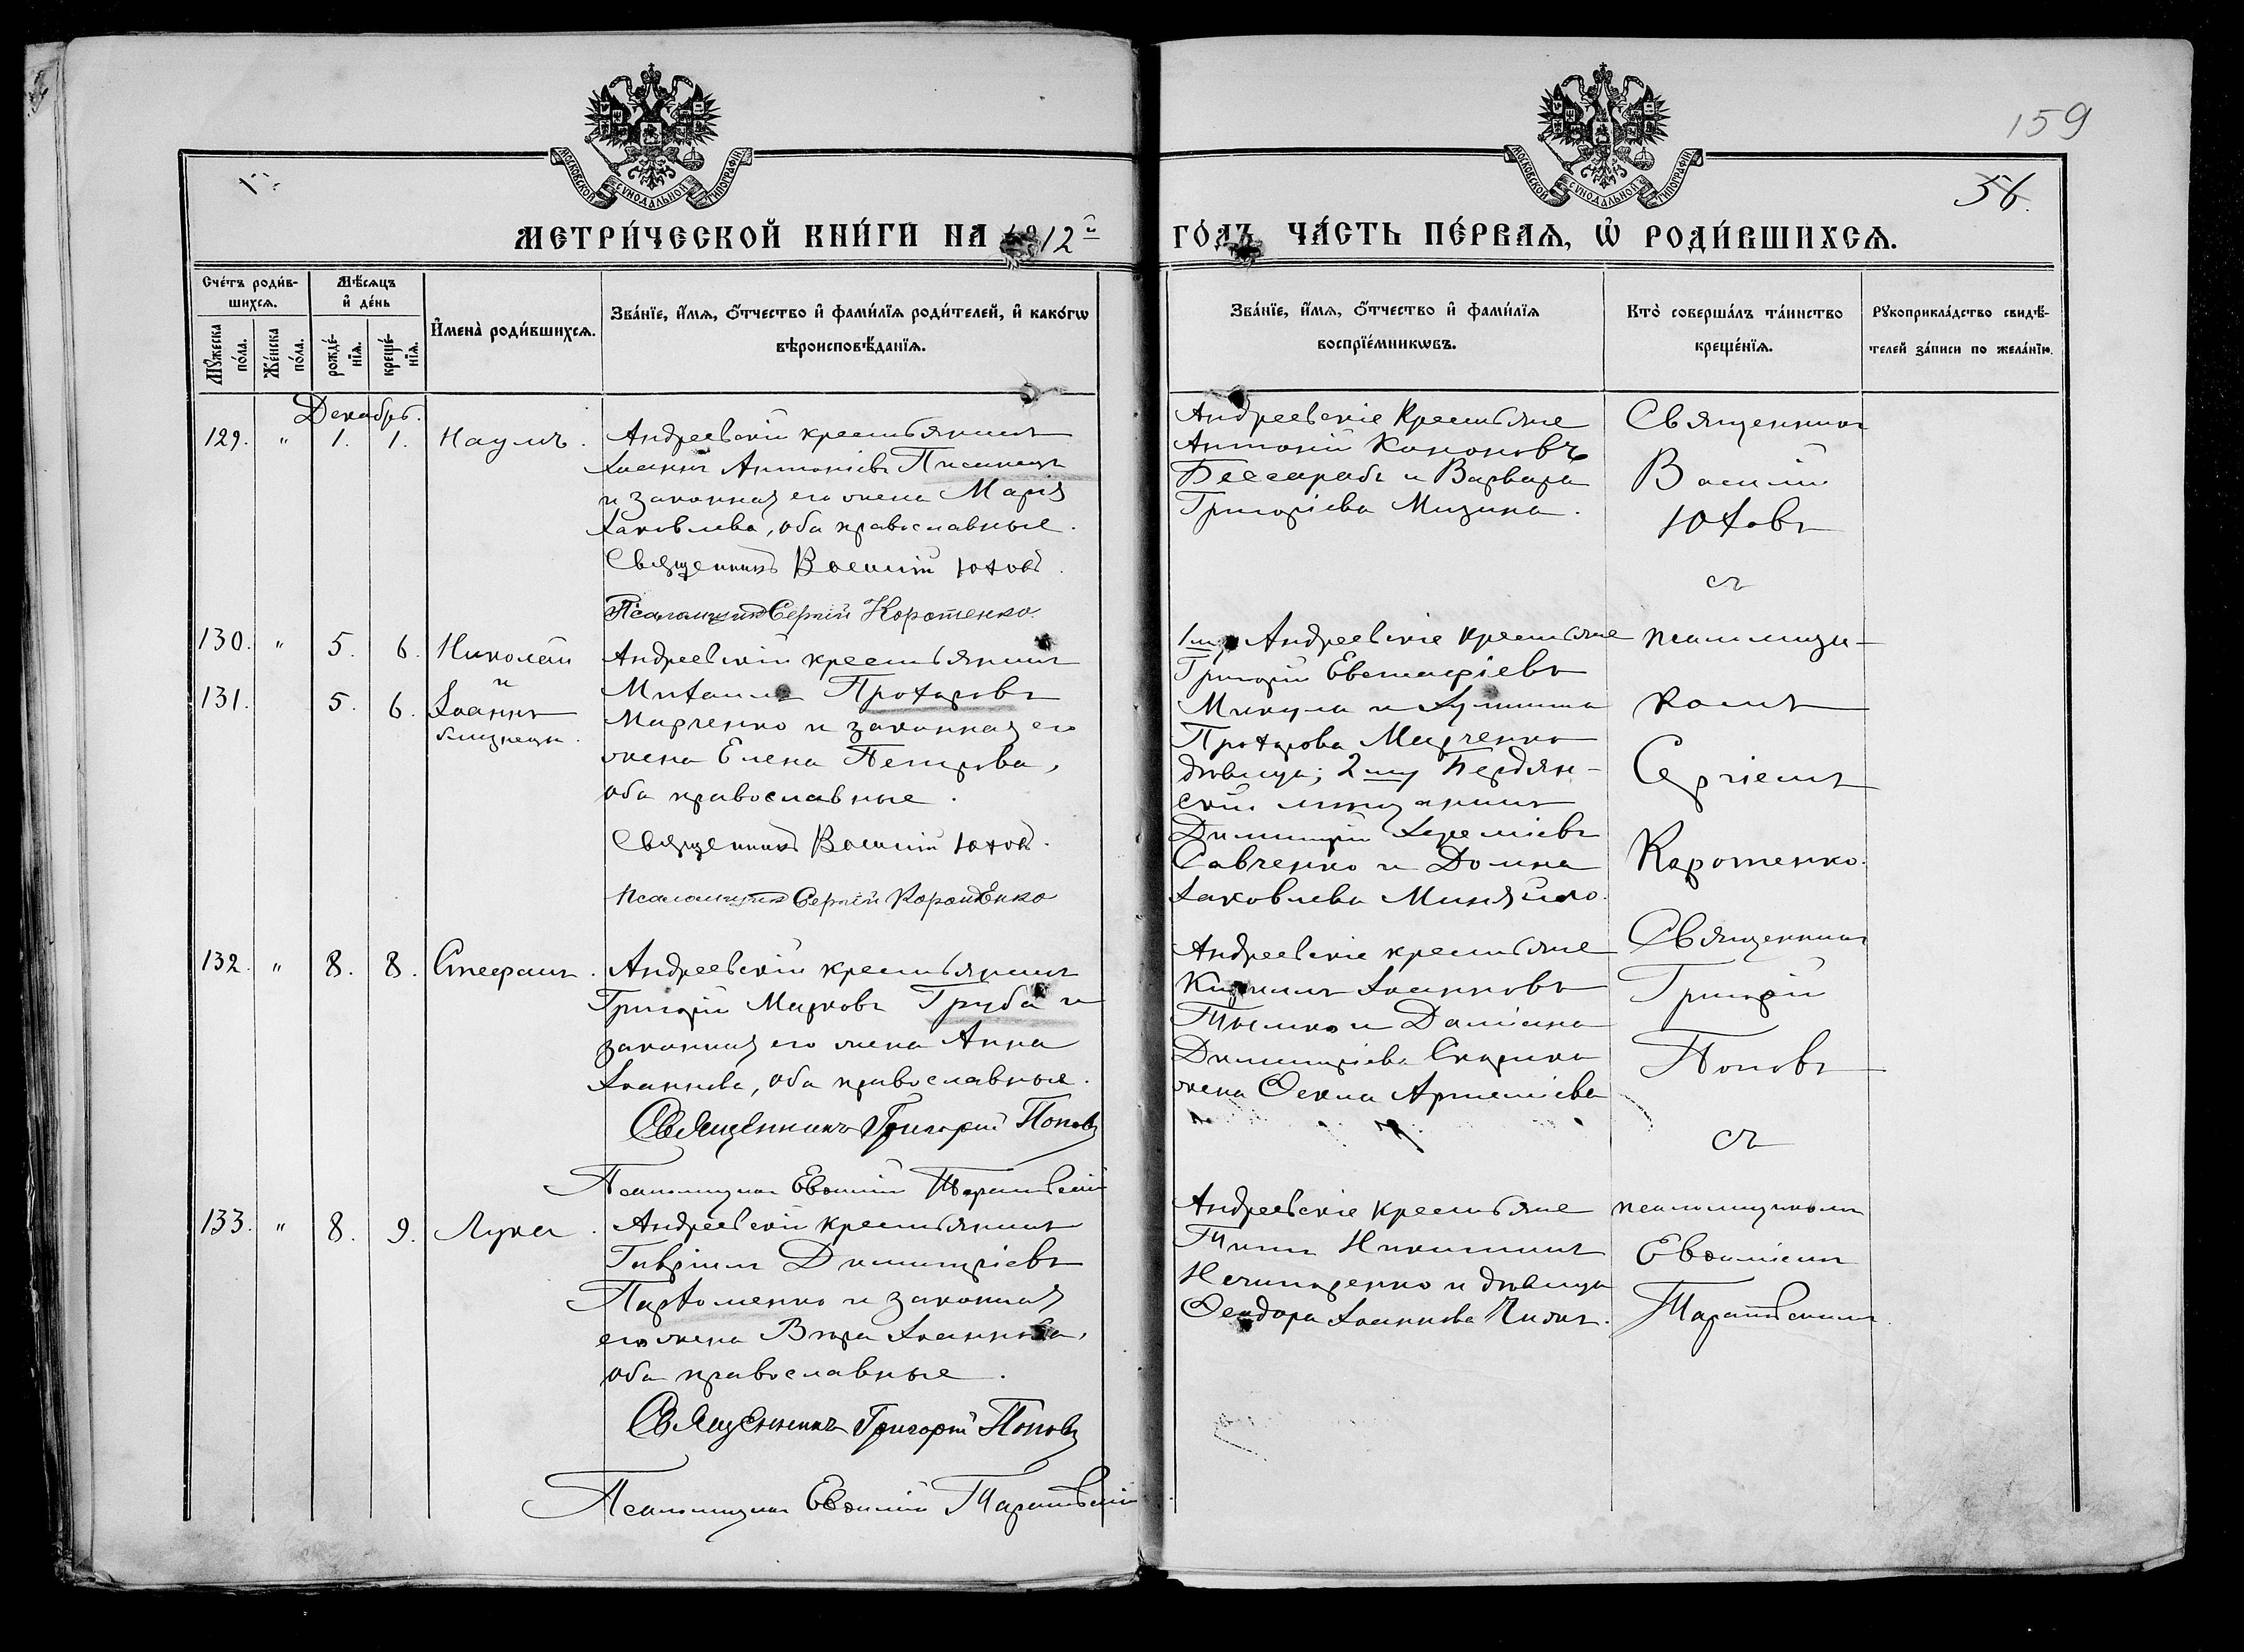 159
56.
МОСКОВСКОЙ СѴНОДАЛЬНОЙ ТИПОГРАФІИ
МОСКОВСКОЙ СѴНОДАЛЬНОЙ ТИПОГРАФІИ
МЕТРИ́ЧЕСКОЙ КНИ́ГИ НА 1912й
ГО́ДЪ ЧА́СТЬ ПЕ́РВАѦ, Ѡ҆ РОДИ́ВШИХСѦ.
Сче́тъ роди́в-
шихсѧ.
Мѹ́жеска по́ла.
Же́нска по́ла.
Мѣ́сѧцъ
и҆ де́нь
рожде́-
нїѧ.
креще́-
нїѧ.
И҆мена̀ роди́вшихсѧ.
Зва́нїе, и҆́мѧ, ѻ҆́тчество и҆ фами́лїѧ роди́телей, и҆ како́гѡ
вѣроисповѣ́данїѧ.
Зва́нїе, и҆́мѧ, ѻ҆́тчество и҆ фами́лїѧ
воспрїе́мникѡвъ.
Кто̀ соверша́лъ та́инство
креще́нїѧ.
Рѹкоприкла́дство свидѣ́-
телей за́писи по жела́нїю.
Декабрь.
129. " 1. 1. Наумъ.
Андреевскій крестьянинъ
Іоаннъ Антоніевъ Писанецъ
и законная его жена Марія
Іаковлева, оба православные.
Священникъ Василій Юховъ.
Псаломщикъ Сергій Коротенко.
Андреевскіе крестьяне
Антоній Кононовъ
Бессарабъ и Варвара
Григоріева Мизина.
Священникъ
Василій
Юховъ
съ
130. " 5. 6. Николай
и
131. 5. 6. Іоаннъ
близнецы.
Андреевскій крестьянинъ
Михаилъ Прохоровъ
Марченко и законная его
жена Елена Петрова,
оба православные.
Священникъ Василій Юховъ.
Псаломщикъ Сергій Коротенко
1му Андреевскіе крестьяне
Григорій Евстафіевъ
Микула и
Прохорова Марченко
дѣвица; 2му Бердян-
скій мѣщанинъ
Димитрій Іереміевъ
Савченко и Домна
Іаковлева
псаломщи-
комъ
Сергіемъ
Коротенко.
132. " 8. 8. Стефанъ.
Андреевскій крестьянинъ
Григорій Марковъ Груба и
законная его жена Анна
Іоаннова, оба православные.
Священникъ Григорій Поповъ
Псаломщикъ Евѳимій
Андреевскіе крестьяне
Кириллъ Іоанновъ
и Даміана
Димитріева Скорика
жена Ѳекла Артеміева
Священникъ
Григорій
Поповъ
съ
133. " 8. 9. Лука.
Андреевскій крестьянинъ
Гавріилъ Димитріевъ
Пархоменко и законная
его жена Вѣра Іоаннова,
оба православные.
Священникъ Григорій Поповъ
Псаломщикъ Евѳимій
Андреевскіе крестьяне
Титъ Никитинъ
Нечипоренко и дѣвица
Ѳеодора Іоаннова
псаломщикомъ
Евѳиміемъ